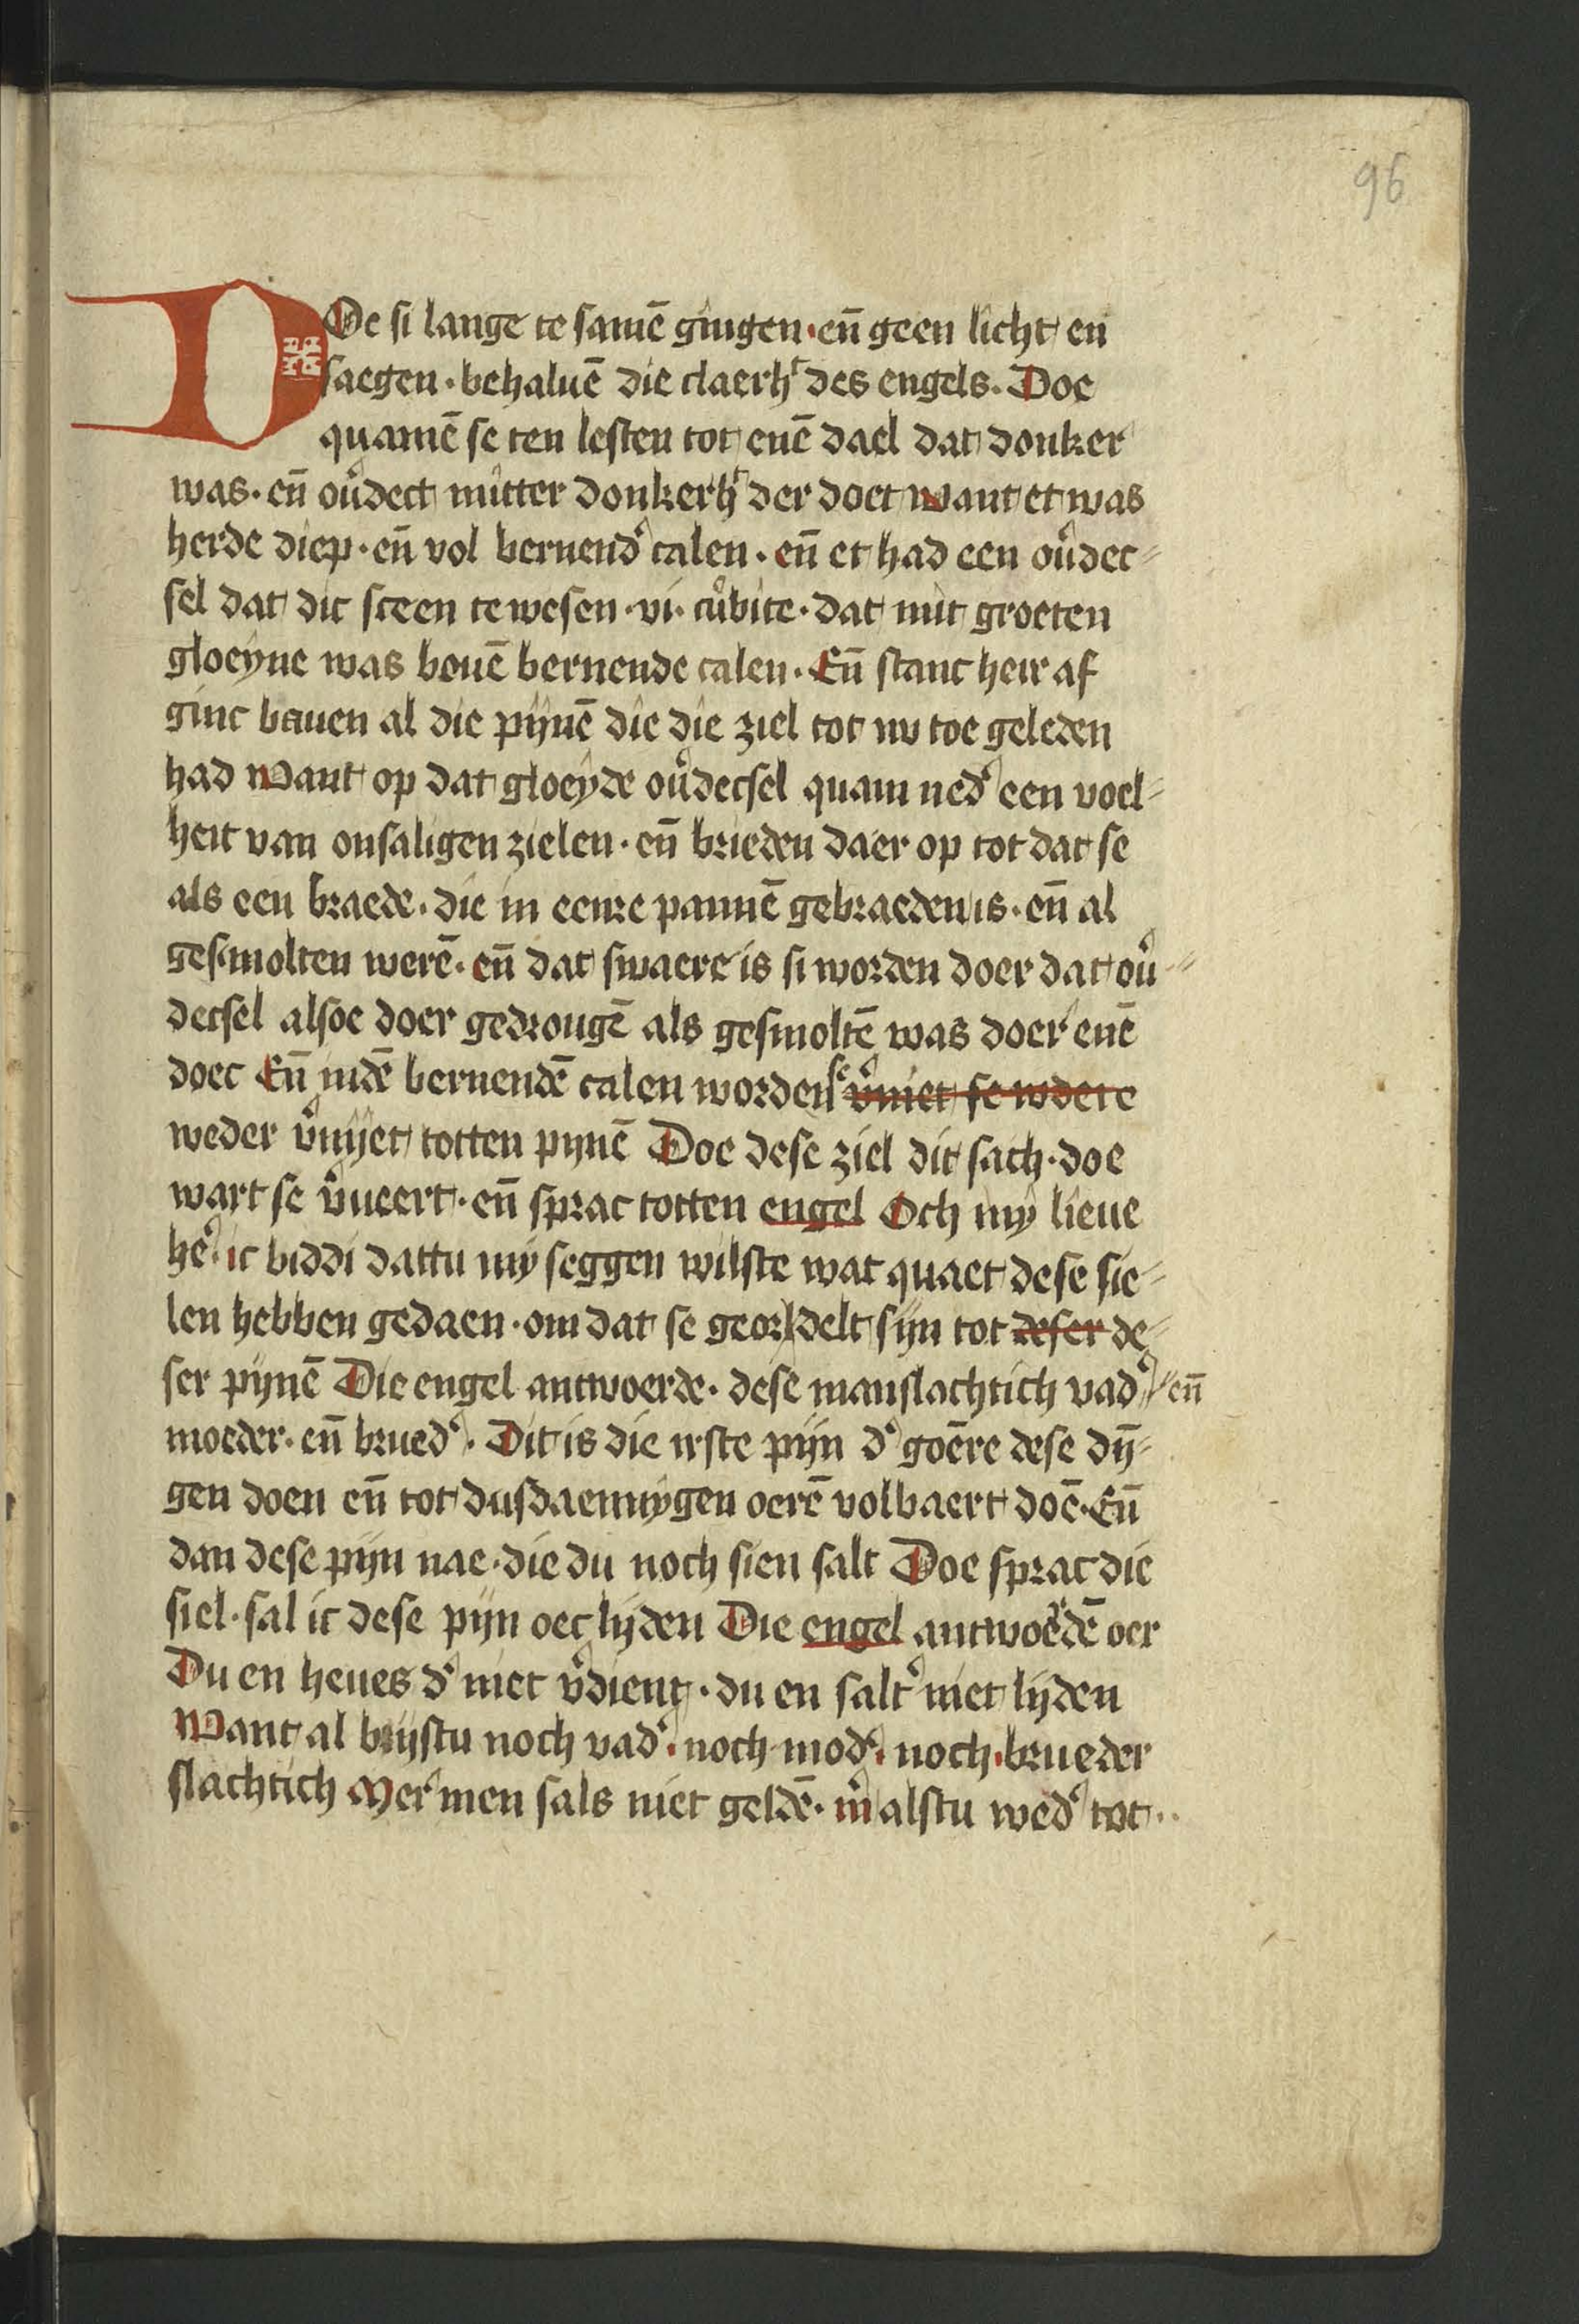 96
DOe si lange te samē gingen · eñ geen licht en
saegen · behaluē die claerhᵗ des engels. Doe
quamē se ten lesten tot enē dael dat donker
was · eñ ouᵉdect mitter donkerhᵗ der doet want et was
herde diep · eñ vol bernendᵉ calen · eñ et had een ouᵉdec⸗
sel dat dic sceen te wesen · vi · cubite · dat mit groeten
gloeyne was bouē bernende calen · Eñ stanc heir af
ginc bauen al die pijnē die die ziel tot nv toe geleden
had Want op dat gloeyde ouᵉdecsel quam nedᵉ een voel⸗
heit van onsaligen zielen · eñ brieden daer op tot dat se
als een braede · die in eenre pannē gebraeden is · eñ al
gesmolten werē · eñ dat swaere is si worden doer dat ouᵉ⸗
decsel alsoe doer gedrongē als gesmoltē was doer enē
doec Eñ indē bernendē calen worden se vᵉniet se wdere
weder vᵉnyet totten pynē Doe dese ziel dit sach · doe
wart se vᵉueert · eñ sprac totten engel Och my lieue
heᵉ · ic biddi dattu my seggen wilste wat quaet dese sie⸗
len hebben gedaen · om dat se geordelt sijn tot deser de⸗
ser pijnē Die engel antwoerde · dese manslachtich vadᵉ eñ
moeder · eñ bruedᵉ · Dit is die irste pijn dᵉ goēre dese dȳ⸗
gen doen eñ tot dusdaennygen oerē volbaert doē · Eñ
dan dese pijn nae · die du noch sien salt Doe sprac die
siel · sal ic dese pijn oec lijden Die engel antwoerdē oer
Du en heues dᵉ niet vᵉdient · du en saltᵉ niet lijden
Want al bijstu noch vadᵉ · noch modᵉ · noch · brueder
slachtich Mer men sals niet geldē · mᵉ alstu wedᵉ tot